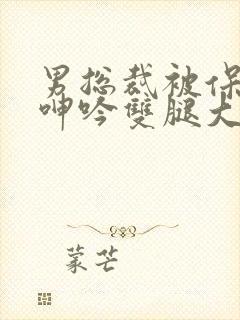 男总裁被保
呻吟雙腿大
蒙芒